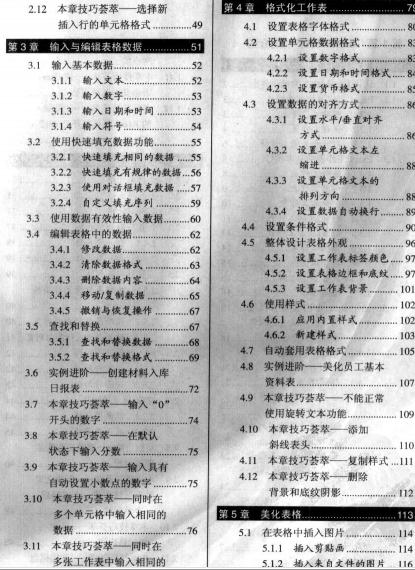 2.12 本章技巧荟萃——选择新
插入行的单元格格式……49
第3章 输入与编辑表格数据……51
3.1 输入基本数据……52
3.1.1 输入文本……52
3.1.2 输入数字……53
3.1.3 输入日期和时间……53
3.1.4 输入符号……54
3.2 使用快速填充数据功能……55
3.2.1 快速填充相同的数据……55
3.2.2 快速填充有规律的数据…56
3.2.3 使用对话框填充数据……57
3.2.4 自定义填充序列……59
3.3 使用数据有效性输入数据……60
3.4 编辑表格中的数据……62
3.4.1 修改数据……62
3.4.2 清除数据格式……63
3.4.3 删除数据内容……64
3.4.4 移动/复制数据……65
3.4.5 撤销与恢复操作……67
3.5 查找和替换……67
3.5.1 查找和替换数据……68
3.5.2 查找和替换格式……69
3.6 实例进阶——创建材料入库
日报表……72
3.7 本章技巧荟萃——输入“0”
开头的数字……74
3.8 本章技巧荟萃——在默认
状态下输入分数……75
3.9 本章技巧荟萃——输入具有
自动设置小数点的数字……75
3.10 本章技巧荟萃——同时在
多个单元格中输入相同的
数据……76
3.11 本章技巧荟萃——同时在
多张工作表中输入相同的
第4章 格式化工作表……79
4.1 设置表格字体格式……80
4.2 设置单元格数据格式……83
4.2.1 设置数字格式……83
4.2.2 设置日期和时间格式……
4.2.3 设置货币格式……
4.3 设置数据的对齐方式……86
4.3.1 设置水平/垂直对齐
方式……86
4.3.2 设置单元格文本左
缩进……88
4.3.3 设置单元格文本的
排列方向……88
4.3.4 设置数据自动换行……89
4.4 设置条件格式……90
4.5 整体设计表格外观……96
4.5.1 设置工作表标签颜色……97
4.5.2 设置表格边框和底纹……97
4.5.3 设置工作表背景……101
4.6 使用样式……102
4.6.1 应用内置样式……102
4.6.2 新建样式……103
4.7 自动套用表格格式……105
4.8 实例进阶——美化员工基本
资料表……107
4.9 本章技巧荟萃——不能正常
使用旋转文本功能……109
4.10 本章技巧荟萃——添加
斜线表头……110
4.11 本章技巧荟萃——复制样式…111
4.12 本章技巧荟萃——删除
背景和底纹阴影……112
第5章 美化表格……113
5.1 在表格中插入图片……114
5.1.1 插入剪贴画……114
5.1.2 插入来自文件的图片……116